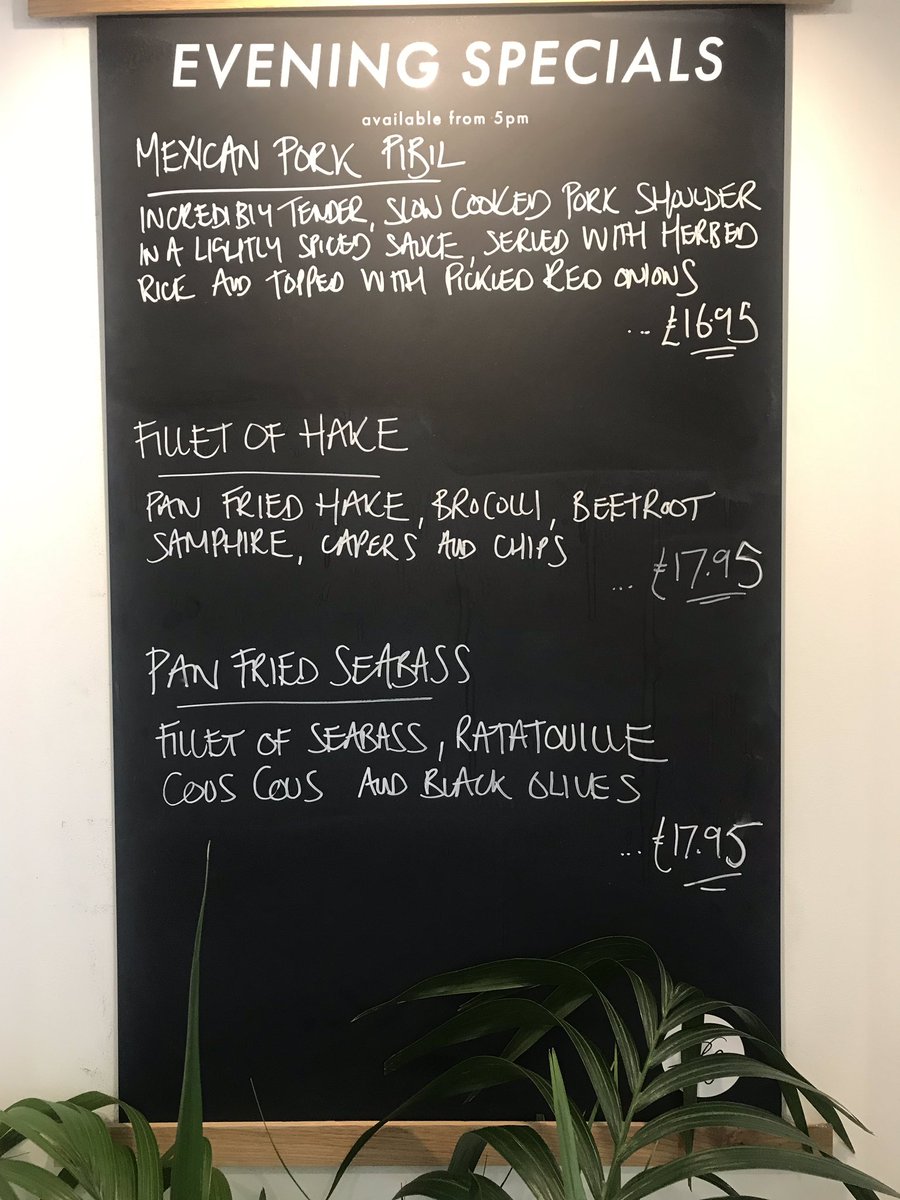 EVENING SPECIALS
available from 5pm
MEXICAN PORK PIBIL
INCREDIBLY TENDER, SLOW COOKED PORK SHOULDER
IN A LIGHTLY SPICED SAUCE, SERVED WITH HERBED
RICE AND TOPPED WITH PICKLED RED ONIONS
... £16.95
FILLET OF HAKE
PAN FRIED HAKE, BROCOLLI, BEETROOT
SAMPHIRE, CAPERS AND CHIPS
... £17.95
PAN FRIED SEABASS
FILLET OF SEABASS, RATATOUILLE
COUS COUS AND BLACK OLIVES
... £17.95